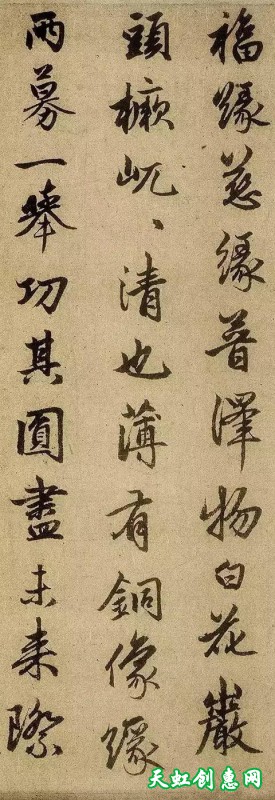 福緣慈緣普澤物白花巖
頭橛屼屼清也薄有銅像緣
兩募一舉功其圓盡未来際
天虹创惠网